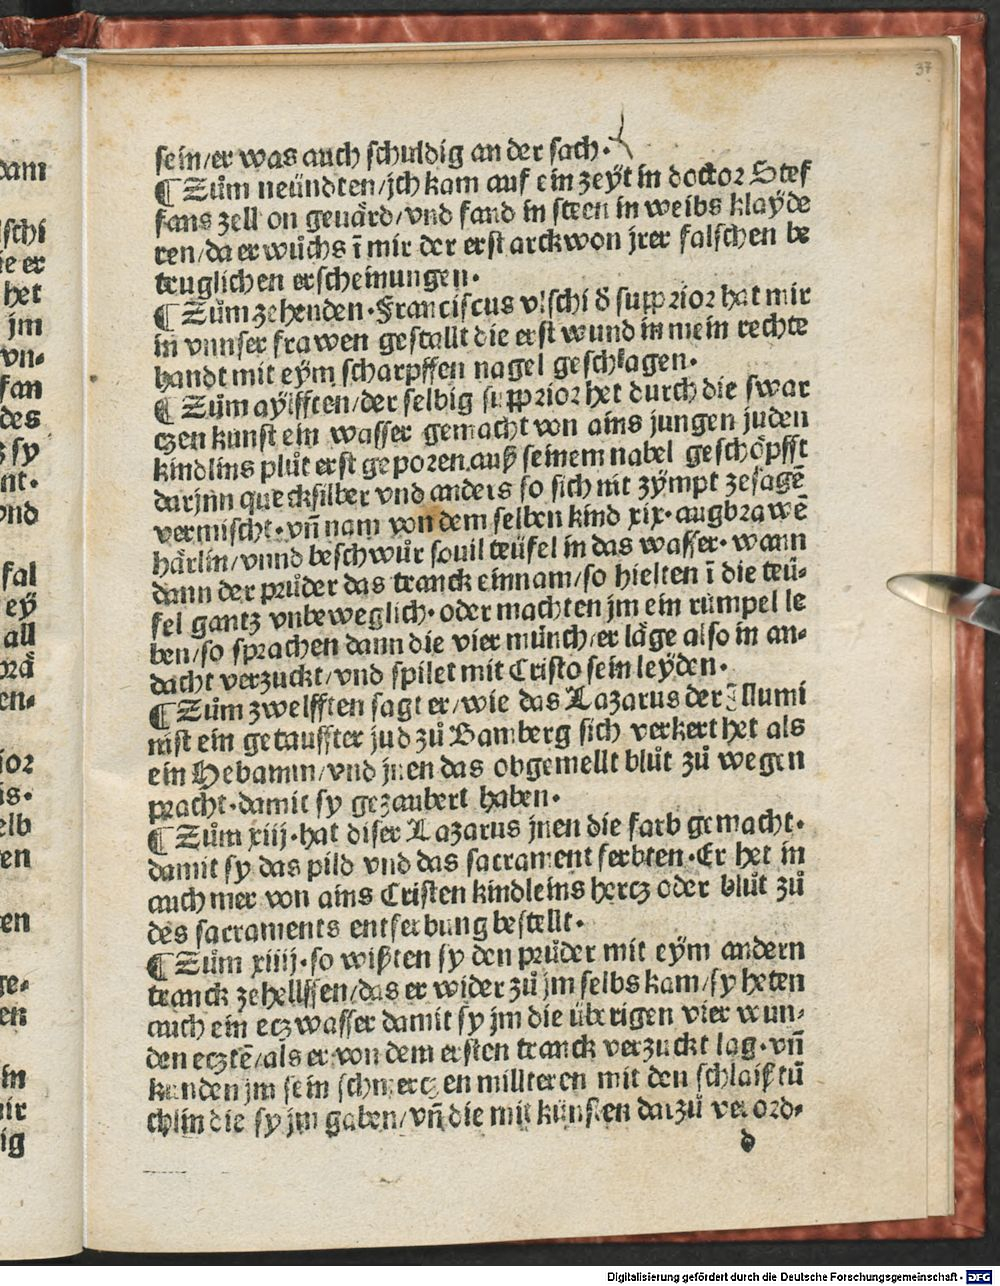 37
sein/er was auch schuldig an der sach.
¶ Zům neündten/jch kam auf ein zeyt in doctor Stef
fans zell on geuärd/vnd fand in steen in weibs klayde
ren/da er wůchs ī mir der erst arckwon jrer falschen be
truglichen erscheinungen.
¶ Zům zehenden. Franciscus vlschi d̕ supprior hat mir
in vnnser frawen gestallt die erst wund in mein rechte
handt mit eym scharpffen nagel geschlagen.
¶ Zům aylfften/der selbig supprior het durch die swar
czen kunst ein wasser gemacht von ains jungen juden
kindlins plůt erst geporen.auß seinem nabel geschöpfft
darjnn quecksilber vnd anders so sich nit zympt zesagē
vermischt. vn̄ nam von dem selben kind xix. augbrawē
härlin/vnnd beschwůr souil teüfel in das wasser. wann
dann der průder das tranck einnam/so hielten ī die teü-
fel gantz vnbeweglich. oder machten jm ein rumpel le
ben/so sprachen dann die vier münch/er läge also in an-
dacht verzuckt/vnd spilet mit Cristo sein leyden.
¶ Zům zwelfften sagt er/wie das Lazarus der Illumi
nist ein getauffter jud zů Bamberg sich verkert het als
ein Hebamm/vnd jnen das obgemellt blůt zů wegen
pracht. damit sy gezaubert haben.
¶ Zům xiij. hat diser Lazarus jnen die farb gemacht.
damit sy das pild vnd das sacrament ferbten. Er het in
auch mer von ains Cristen kindleins hercz oder blůt zů
des sacraments entferbung bestellt.
¶ Zům xiiij. so wißten sy den průder mit eym andern
tranck zehellffen/das er wider zů jm selbs kam/sy heten
auch ein ecz wasser damit sy jm die überigen vier wun-
den eczetē/als er von dem ersten tranck verzuckt lag. vn̄
kunden jm sein schmerczen millteren mit den schlaiftü
chlin die sy jm gaben/vn̄ die mit künsten darzů verord-
d
Digitalisierung gefördert durch die Deutsche Forschungsgemeinschaft - DFG